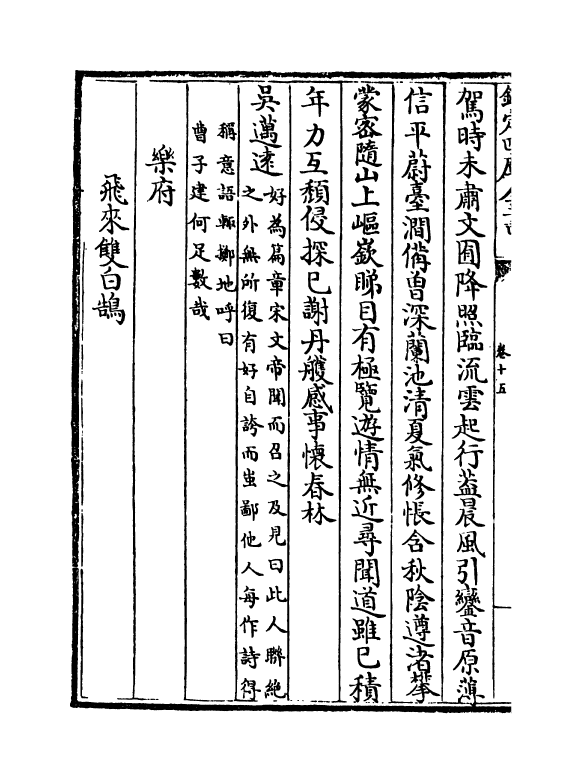 欽定四庫全書
卷十五
駕時未肅文囿降照臨流雲起行葢晨風引鑾音原薄
信平蔚臺澗備曽深蘭池清夏氣修悵含秋陰遵渚攀
蒙宻隨山上嶇嶔睇目有極覽遊情無近尋聞道雖已積
年力互頽侵探已謝丹雘感事懷春林
吳邁遠
好為篇章宋文帝聞而召之及見曰此人聯絶
之外無所復有好自誇而蚩鄙他人每作詩得
稱意語輒擲地呼曰
曹子建何足數哉
樂府
飛來雙白鵠